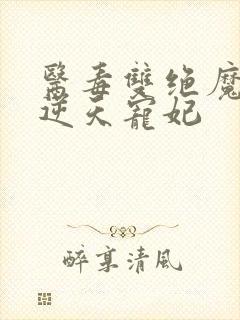 醫毒雙绝魔
逆天寵妃
醉享清風